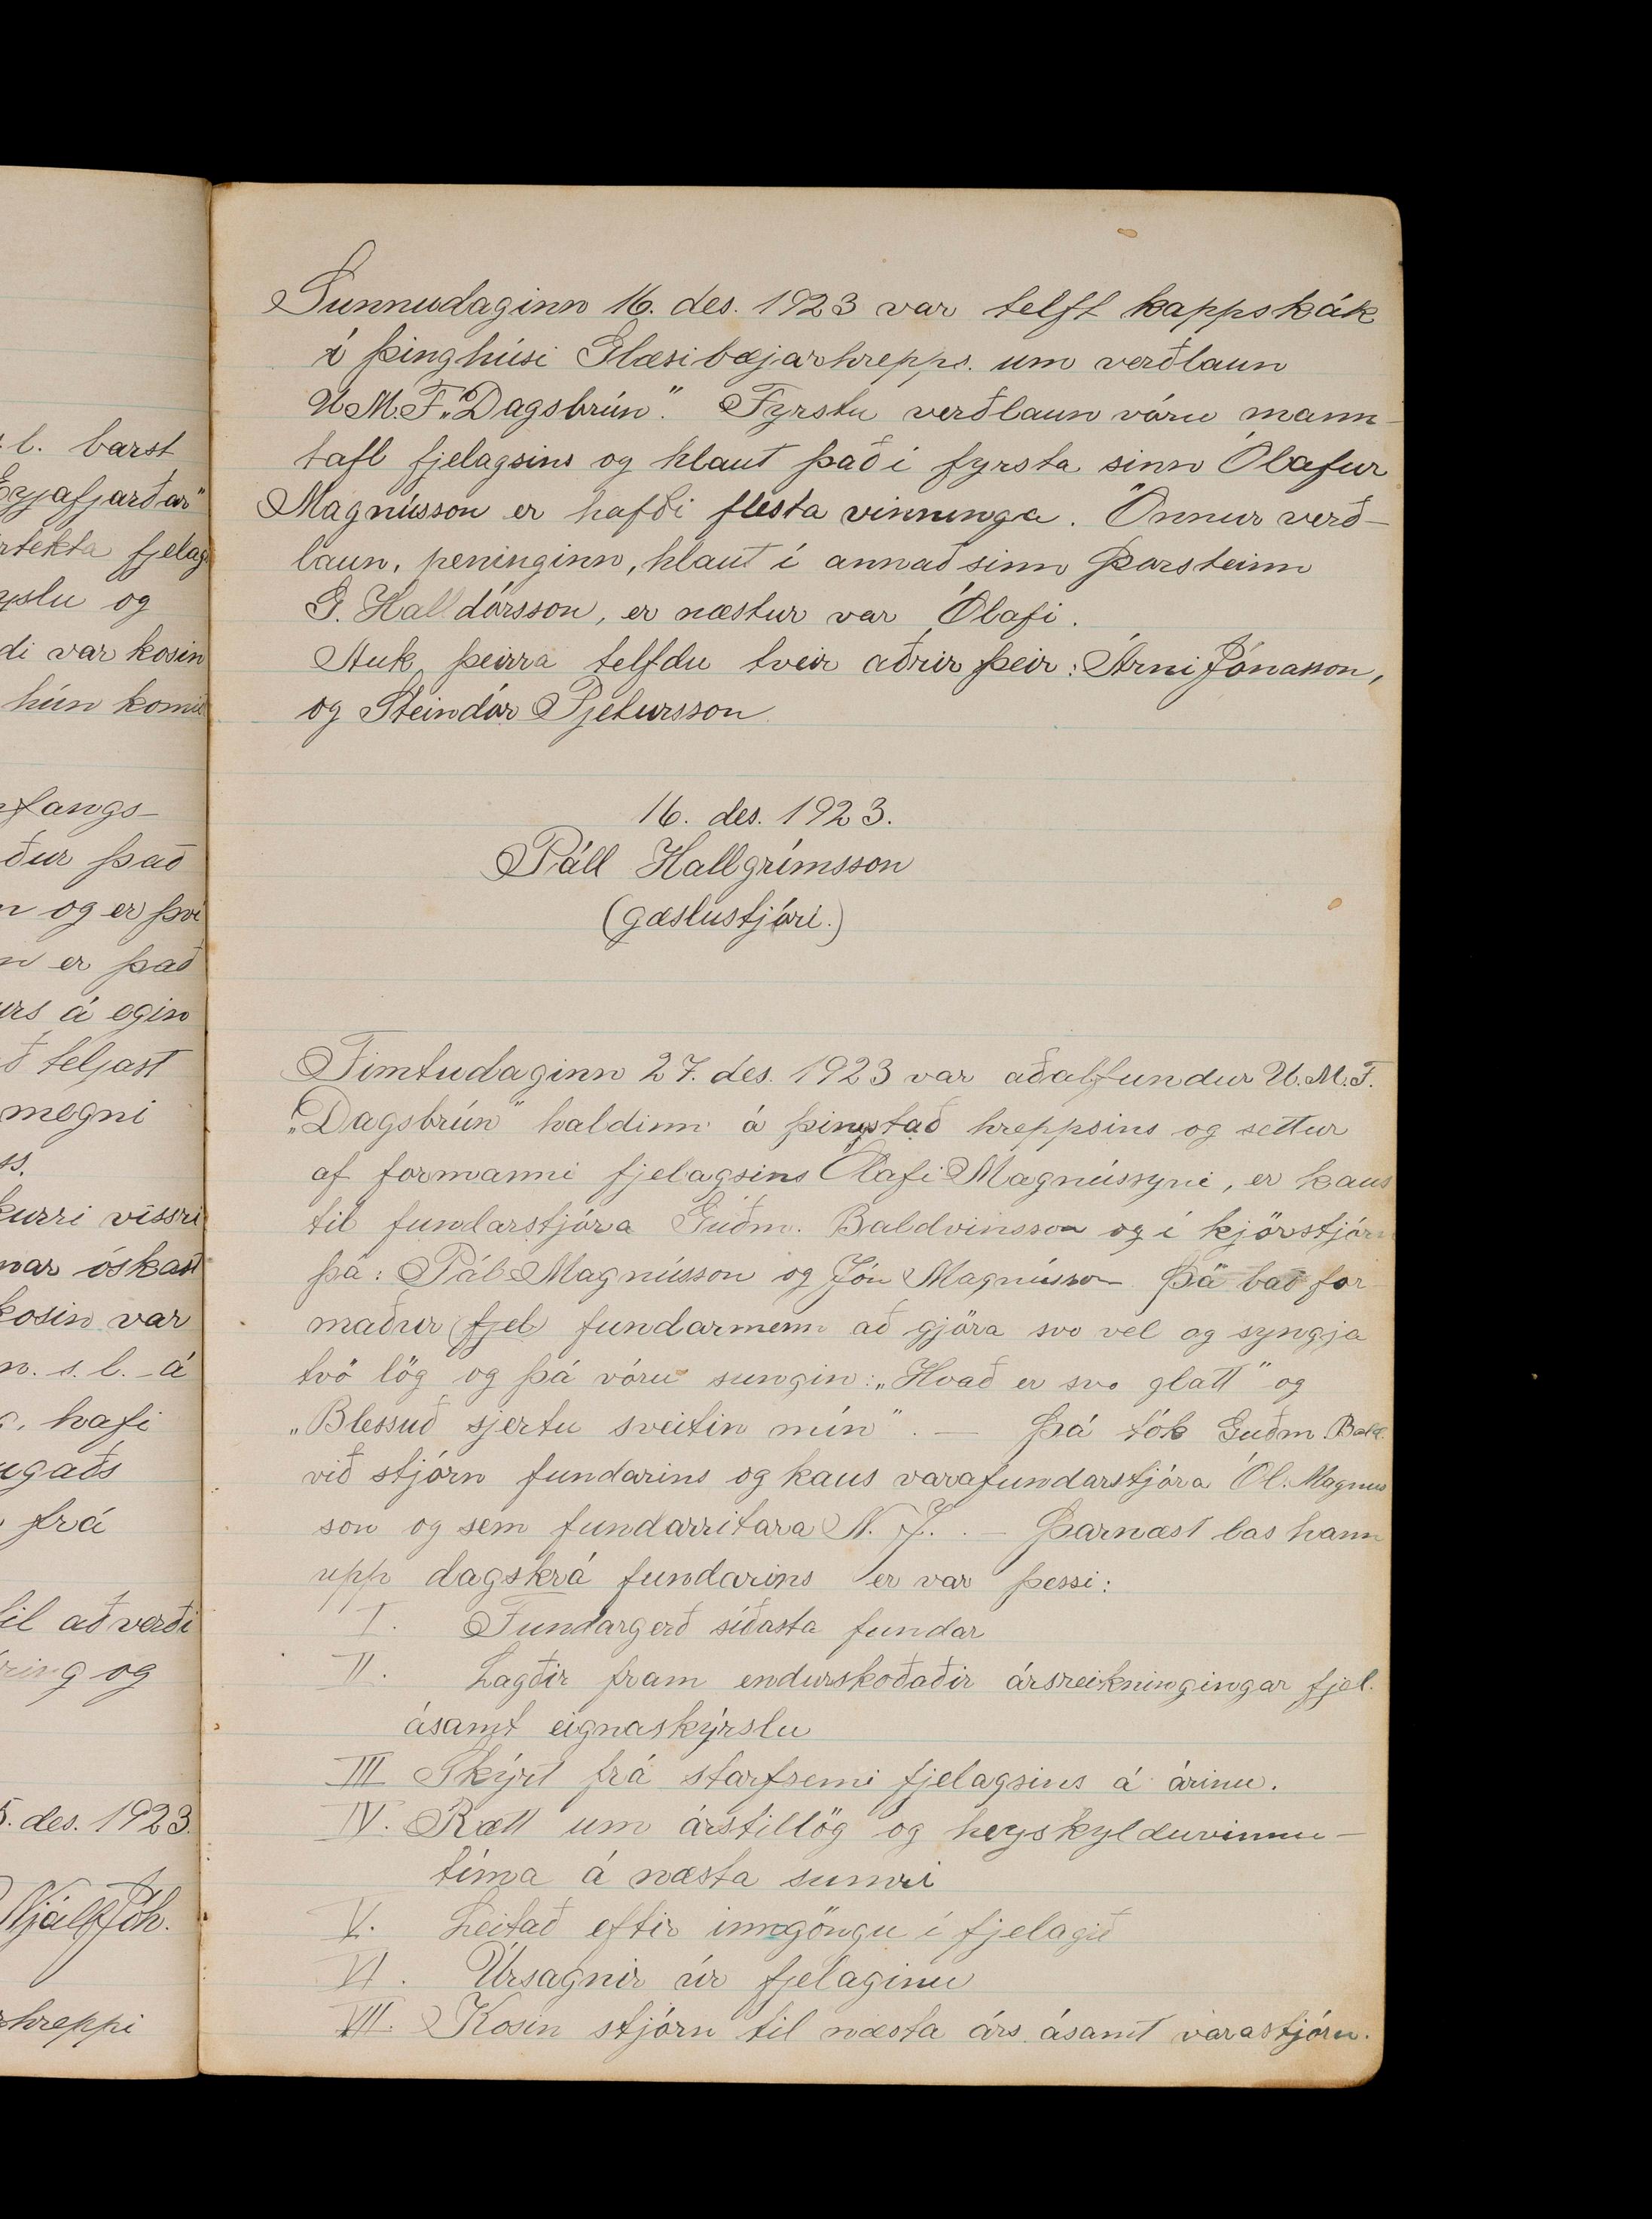 l. barst
Eyjafjarðar"
fjelag
og
di var kosin
hún komið
fangs-
ður það
og er því
er það
á eg in
ð teljast
megni
ss.
vissri
óskað
kosin var
n. s. l. - á
hafi
ugaðs
frá
til að verði
og
5. des. 1923.
Njáll Jóh.
hreppi
Sunnudaginn 16. des. 1923 var telft kappskák
í þinghúsi Glæsibæjarhrepps. um verðlaun
U.M.F. „Dagsbrún". Fyrstu verðlaun vóru mann-
tafl fjelagsins og hlaut það í fyrsta sinn Ólafur
Magnússon er hafði flesta vinninga. Önnur verð-
laun, peninginn, hlaut í annað sinn Þorsteinn
G. Halldórsson, er næstur var Ólafi.
Auk þeirra telfdu tveir aðrir þeir: Árni Jónasson,
og Steindór Pjetursson
16. des. 1923.
Páll Hallgrímsson
(gæslustjóri.)
Fimtudaginn 27. des. 1923 var aðalfundur U.M.F.
„Dagsbrún" haldinn á þingstað hreppsins og settur
af formanni fjelagsins Ólafi Magnússyni, er kaus
til fundarstjóra Guðm. Baldvinsson og í kjörstjórn
þá: Pál Magnússon og Jón Magnússon Þá bað for
maður (fjel) fundarmenn að gjöra svo vel og syngja
tvö lög og þá vóru sungin: „Hvað er svo glatt" og
„Blessuð sjertu sveitin mín". — Þá tók Guðm. Bald.
við stjórn fundarins og kaus varafundarstjóra Ól. Magnus
son og sem fundarritara N. J. . — Þarnæst las hann
upp dagskrá fundarins er var þessi:
I. Fundargerð síðasta fundar
II. Lagðir fram endurskoðaðir ársreikningingar fjel.
ásamt eignaskýrslu
III Skýrt frá starfsemi fjelagsins á árinu.
IV. Rætt um árstillög og heyskylduvinnu-
tíma á næsta sumri
V. Leitað eftir inngöngu í fjelagið
VI. Úrsagnir úr fjelaginu
VII. Kosin stjórn til næsta árs ásamt varastjórn.